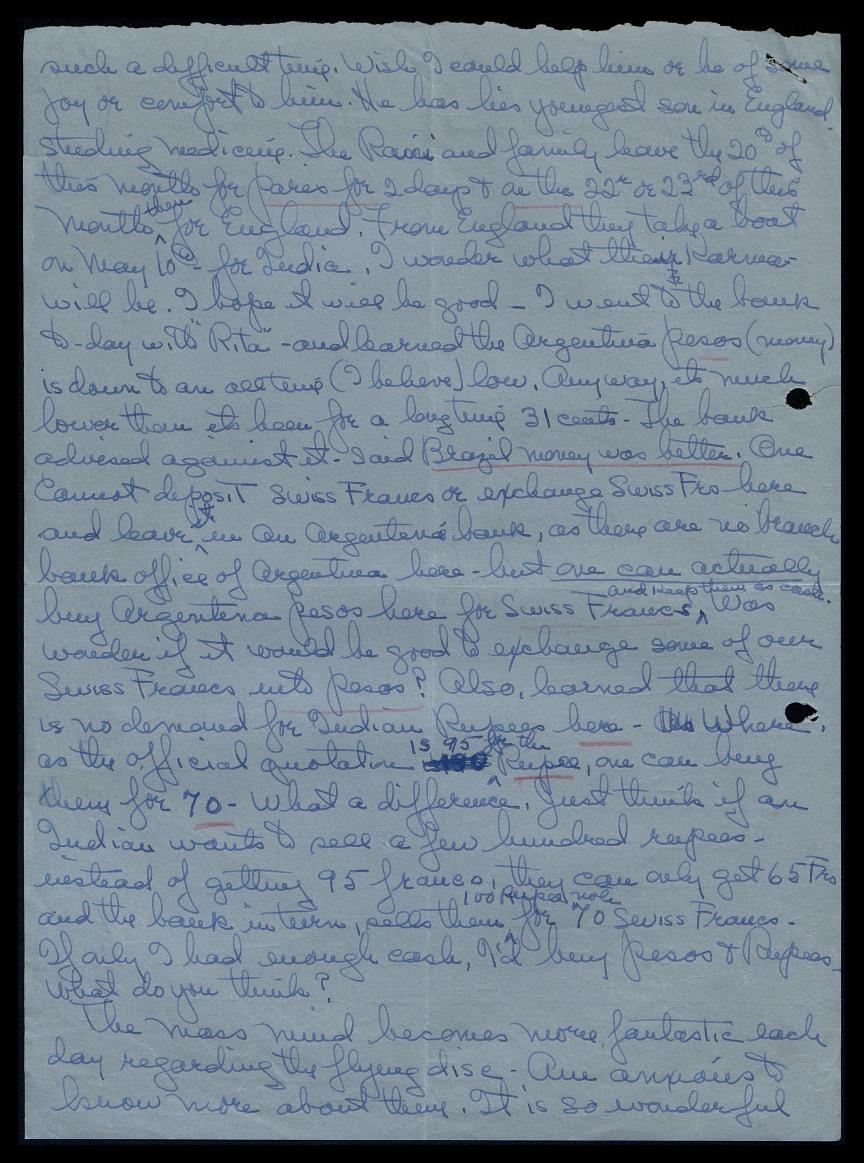 such a difficult time. Wish I could help him or be of some
joy or comfort to him. He has his youngest son in England
studing medicine. The Rani and family leave the 20th of
this month for Paris for 2 days & on the 22nd or 23rd of this
month then for England. From England they take a boat
on May 10th - for India. I wonder what their Karma
will be. I hope it will be good - I went to the bank
to-day with "Rita" - and learned the Argentina pesos (money)
is down to an all time (I believe) low. Anyway, its much
lower then its been for a long time 31 cents - The bank
advised against it - Said Brazil money was better. One
Cannot deposit Swiss Francs or exchange Swiss Frs here
and leave it in an Argentena bank, as there are no branch
bank office of Argentina here - but one can actually
and keep them as cash.
buy Argentena pesos here for Swiss Francs, Was
wonder if it would be good to exchange some of our
Swiss Francs into pesos? Also, learned that there
is no demand for Indian Rupees here - Where.
is 95 for the
as the official quotation Rupee, one can buy
them for 70 - What a difference. Just think if an
Indian wants to sell a few hundred rupees -
instead of getting 95 francs, they can only get 65 Frs
100 Rupee note
and the bank in turn, sells them for 70 Swiss Francs -
If only I had enough cash, I'd buy pesos & Rupees -
What do you think?
The mass mind becomes more fantastic each
day regarding the flying disc - Am anxious to
know more about them. It is so wonderful